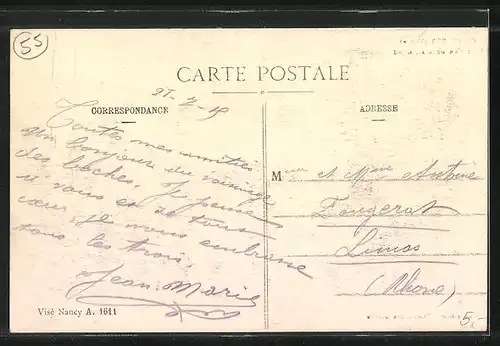 55
CARTE POSTALE
CORRESPONDANCE
ADRESSE
Toutes mes amitiés
un bonjour du voisinage
des boches. Je pense
à vous et à tous
cœur. Je vous embrasse
tous les trois.
Jean Marie
M et Mme Antoine
Fougerat
Limas
(Rhone)
Visé Nancy A. 1611
5,-